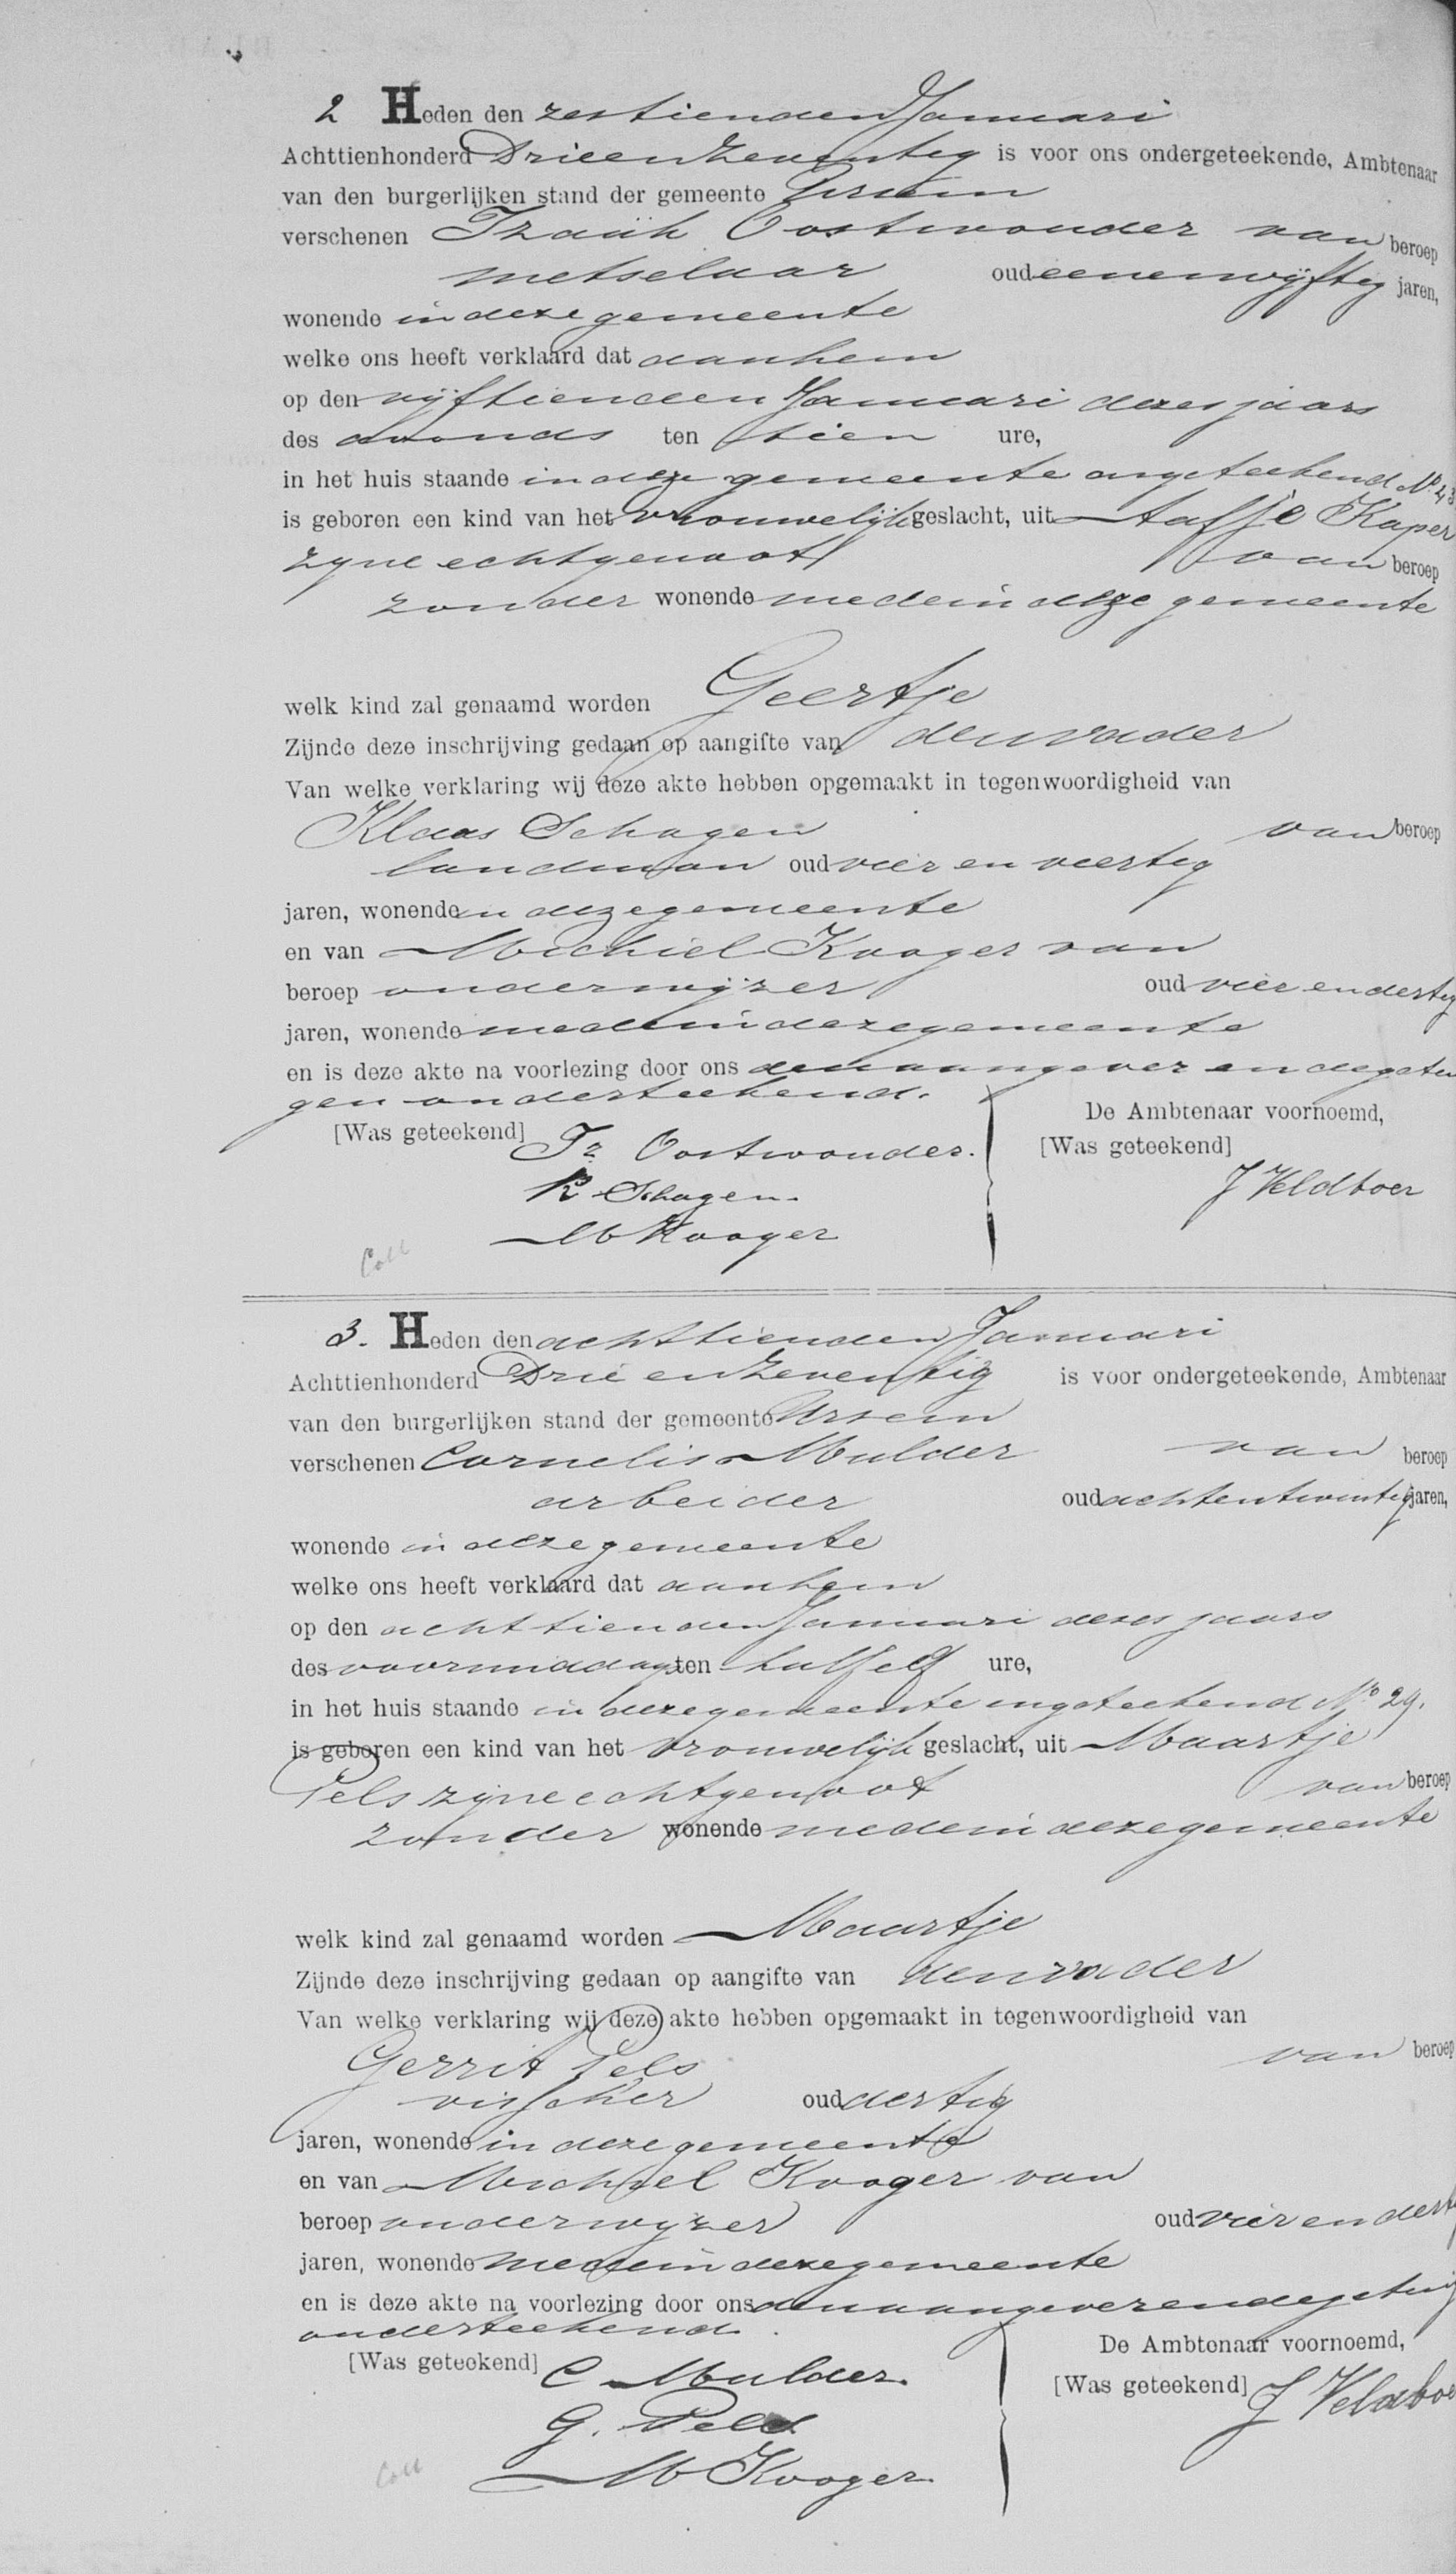 2 Heden den zestienden Januari
Achttienhonderd Drieenzeventig is voor ons ondergeteekende, Ambtenaar
van den burgerlijken stand der gemeente Ursem
verschenen Izaäk Oostwouder van beroep
metselaar oud eenenvijftig jaren,
wonende in deze gemeente
welke ons heeft verklaard dat aan hem
op den vijftienden Januari dezes jaars
des avonds ten tien ure,
in het huis staande in deze gemeente angeteekend No 43
is geboren een kind van het vrouwelijk geslacht, uit Aafje Kaper
zyne echtgenoot van beroep
zonder wonende mede in deze gemeente
welk kind zal genaamd worden Geertje
Zijnde deze inschrijving gedaan op aangifte van den vader
Van welke verklaring wij deze akte hebben opgemaakt in tegenwoordigheid van
Klaas Schagen van beroep
landman oud vier en veertig
jaren, wonende in deze gemeente
en van Michiel Kooger van
beroep onderwijzer oud vier en dertig
jaren, wonende mede in deze gemeente
en is deze akte na voorlezing door ons den aangever en de getui
gen onderteekend.
[Was geteekend] Iz Oostwouder. De Ambtenaar voornoemd,
K Schagen. [Was geteekend]
M Kooger J Veldboer
Coll
3. Heden den achttienden Januari
Achttienhonderd Drie en Zeventig is voor ondergeteekende, Ambtenaar
van den burgerlijken stand der gemeente Ursem
verschenen Cornelis Mulder van beroep
arbeider oud achtentwintig jaren,
wonende in deze gemeente
welke ons heeft verklaard dat aan hem
op den achttienden Januari dezes jaars
des voormiddags ten half elf ure,
in het huis staande in deze gemeente angeteekend No 29.
is geboren een kind van het vrouwelijk geslacht, uit Maartje
Pels zijne echtgenoot van beroep
zonder wonende mede in deze gemeente
welk kind zal genaamd worden Maartje
Zijnde deze inschrijving gedaan op aangifte van den vader
Van welke verklaring wij deze akte hebben opgemaakt in tegenwoordigheid van
Gerrit Pels van beroep
visscher oud dertig
jaren, wonende in deze gemeente
en van Michiel Kooger van
beroep onderwyzer oud vier en dert
jaren, wonende mede in deze gemeente
en is deze akte na voorlezing door ons den aangever en de getuig
onderteekend.
[Was geteekend] C Mulder. De Ambtenaar voornoemd,
G. Pels [Was geteekend] J Veldboe
M Kooger.
Coll